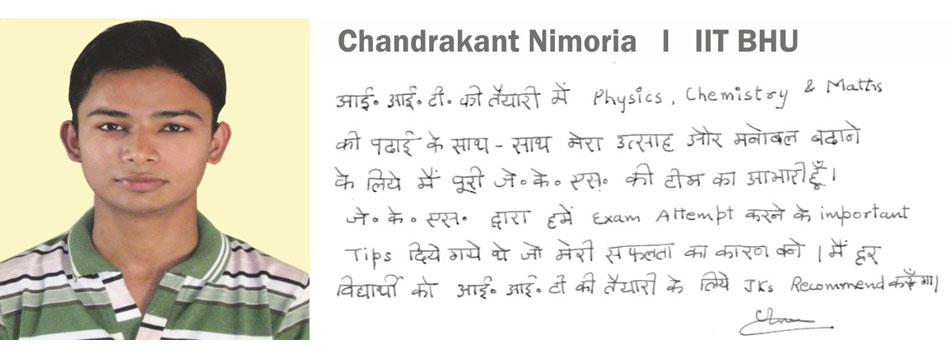 Chandrakant Nimoria I IIT BHU
आई॰ आई॰ टी॰ की तैयारी में Physics, Chemistry & Maths
की पढाई के साथ - साथ मेरा उत्साह और मनोबल बढाने
के लिये मैं पूरी जे॰ के॰ एस॰ की टीम का आभारी हूँ।
जे॰ के॰ एस॰ द्वारा हमें Exam Attempt करने के important
Tips दिये गये थे जो मेरी सफलता का कारण बने । मैं हर
विद्यार्थी को आई॰ आई॰ टी की तैयारी के लिये JKs Recommend करूँगा।